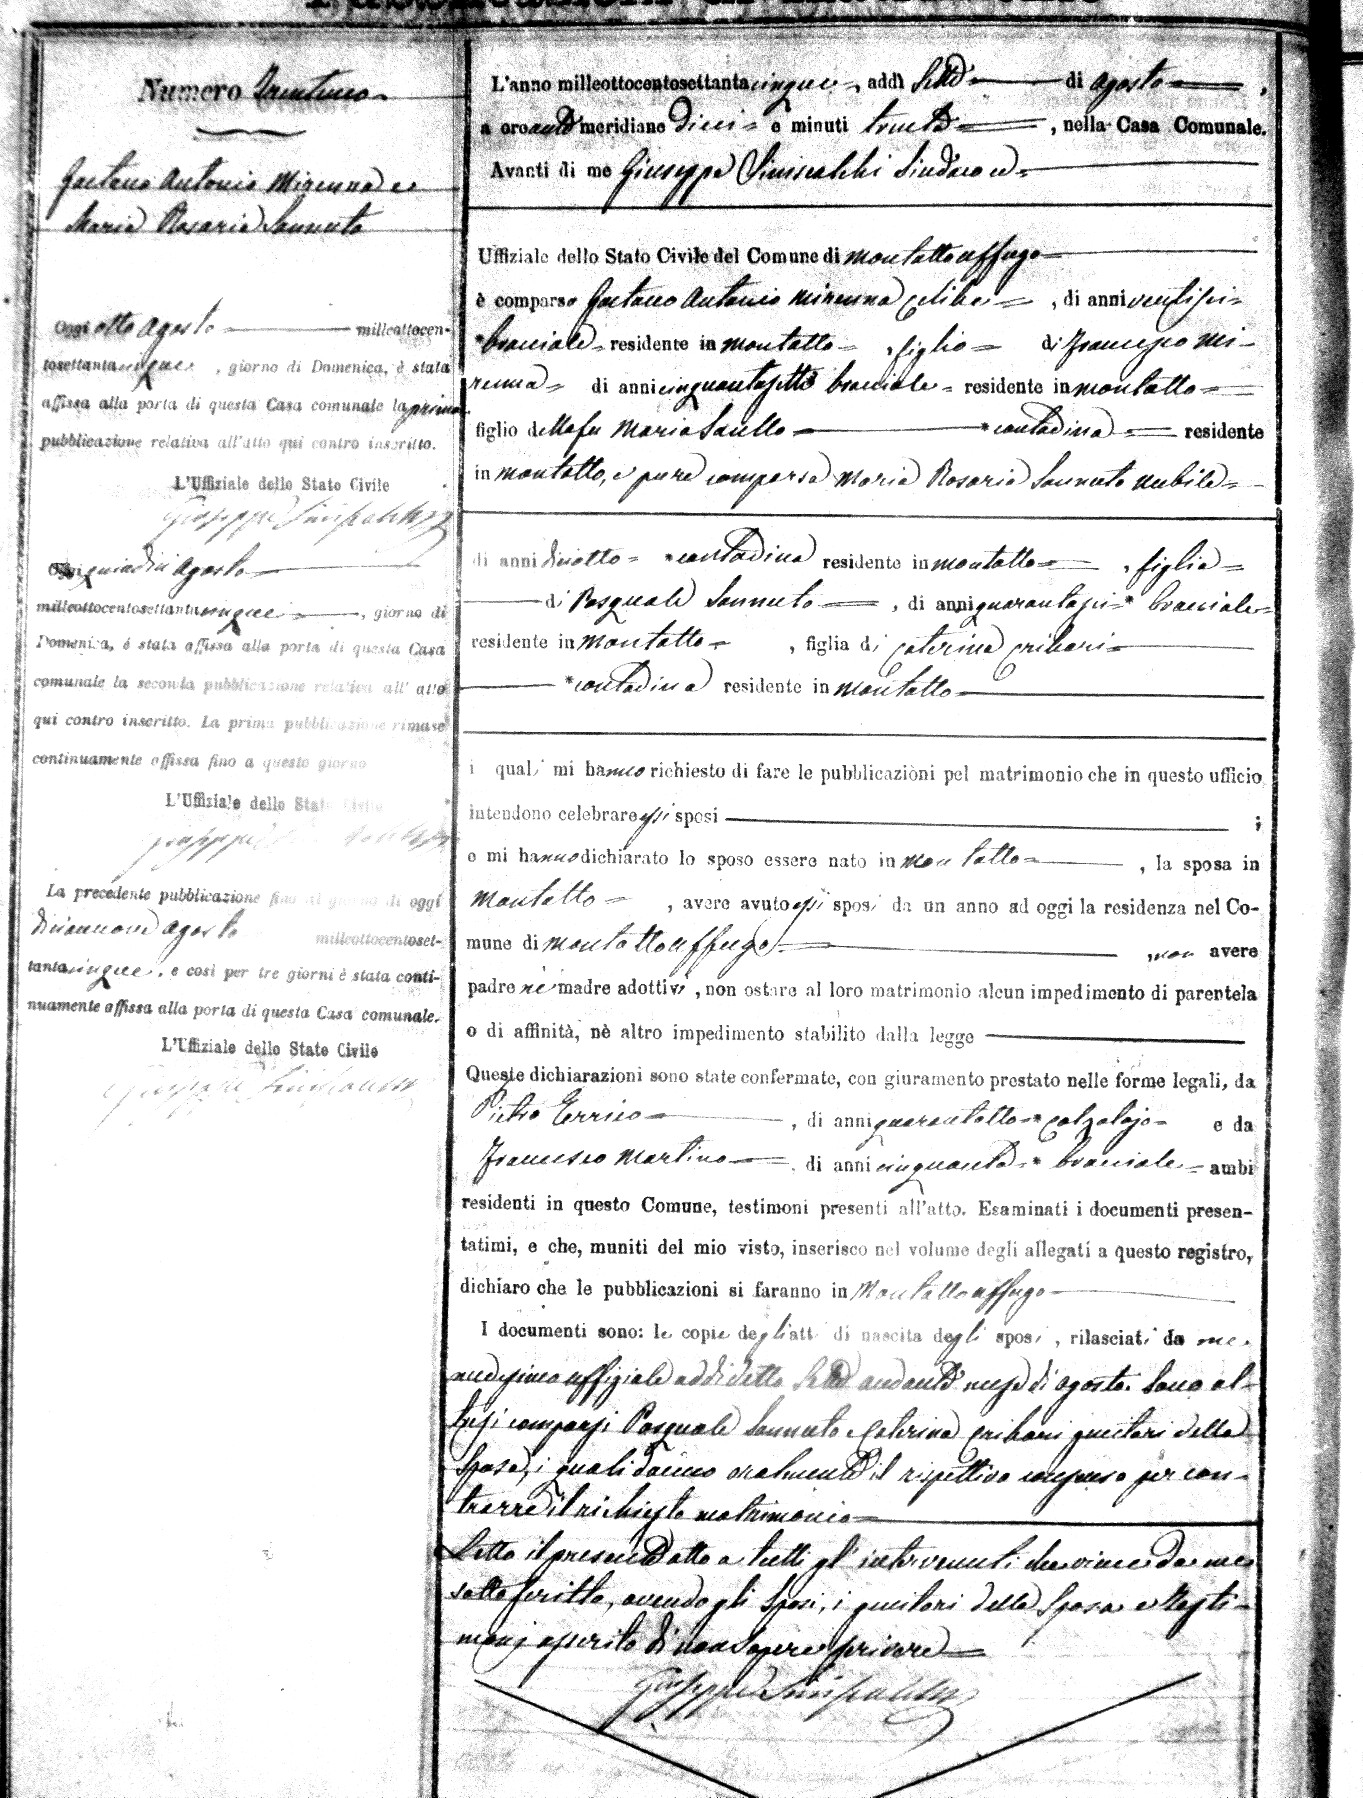 Numero Trentuno
Gaetano Antonio Mirenna e
Maria Rosaria Sannuto
Oggi otto Agosto milleottocen-
tosettantacinque, giorno di Domenica, è stata
affissa alla porta di questa Casa comunale la prima
pubblicazione relativa all'atto qui contro inscritto.
L'Uffiziale dello Stato Civile
Giuseppe Siniscalchi
Oggi quindici Agosto
milleottocentosettantacinque, giorno di
Domenica, è stata affissa alla porta di questa Casa
comunale la seconda pubblicazione relativa all' atto
qui contro inscritto. La prima pubblicazione rimase
continuamente affissa fino a questo giorno
L'Uffiziale dello Stato Civile
Giuseppe Siniscalchi
La precedente pubblicazione fino al giorno di oggi
diciannove Agosto milleottocentoset-
tantacinque, e così per tre giorni è stata conti-
nuamente affissa alla porta di questa Casa comunale.
L'Uffiziale dello Stato Civile
Giuseppe Siniscalchi
L'anno milleottocentosettantacinque, addì sette di Agosto,
a ore anti meridiane dieci e minuti trenta, nella Casa Comunale.
Avanti di me Giuseppe Siniscalchi Sindaco e
Uffiziale dello Stato Civile del Comune di Montaltouffugo
è comparso Gaetano Antonio Mirenna celibe, di anni ventisei
*bracciale residente in Montalto, figlio di Francesco Mi-
renna di anni cinquantasette bracciale residente in Montalto
figlio della fu Maria Saullo *contadina residente
in Montalto, e pure comparsa Maria Rosaria Sannuto nubile
di anni diciotto *contadina residente in Montalto, figlia
di Pasquale Sannuto, di anni quarantasei* bracciale
residente in Montalto, figlia di Caterina Cribari
*contadina residente in Montalto
i quali mi hanno richiesto di fare le pubblicazioni pel matrimonio che in questo ufficio
intendono celebrare essi sposi ;
e mi hanno dichiarato lo sposo essere nato in Montalto, la sposa in
Montalto, avere avuto essi sposi da un anno ad oggi la residenza nel Co-
mune di Montaltouffugo, non avere
padre nè madre adottivi, non ostare al loro matrimonio alcun impedimento di parentela
o di affinità, nè altro impedimento stabilito dalla legge
Queste dichiarazioni sono state confermate, con giuramento prestato nelle forme legali, da
Pietro Errico, di anni quarantotto* calzolajo e da
Francesco Martino, di anni cinquanta* bracciale ambi
residenti in questo Comune, testimoni presenti all'atto. Esaminati i documenti presen-
tatimi, e che, muniti del mio visto, inserisco nel volume degli allegati a questo registro,
dichiaro che le pubblicazioni si faranno in Montaltouffugo
I documenti sono: le copie degli atti di nascita degli sposi, rilasciati da me
medesimo uffiziale addì detto sette andante mese di Agosto. Sono al-
tresi comparsi Pasquale Sannuto e Caterina Cribari genitori della
Sposa, i quali danno oralmente il rispettivo consenso per con-
trarre il richiesto matrimonio
Letto il presente atto a tutti gl'intervenuti che viene da me
sottoscritto, avendo gli Sposi, i genitori della Sposa e Testi-
monj asserito di non sapere scrivere
Giuseppe Siniscalchi